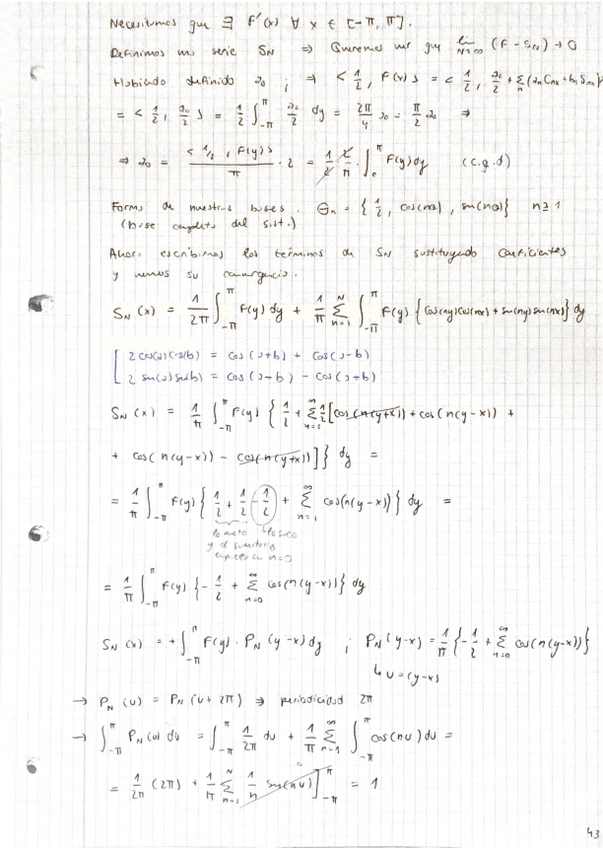 Necesitamos que ∃ F'(x) ∀ x ∈ [-π, π].
Definimos una serie S_N ⇒ Queremos ver que lim_{N→∞} (F - S_N) → 0
Habiendo definido a₀ ; ⇒ < 1/2 , F(x) > = < 1/2 , a₀/2 + Σ_n (a_n C_nx + b_n S_nx) >
= < 1/2 , a₀/2 > = 1/2 ∫_{-π}^{π} a₀/2 dy = 2π/4 a₀ = π/2 a₀ ⇒
⇒ a₀ = < 1/2 , F(y) > / π · 2 = 1/2 2/π · ∫ F(y) dy (c.q.d)
Forma de nuestras bases. Θ_n = { 1/2 , cos(nx) , sen(nx) } n ≥ 1
(base completa del sist.)
Ahora escribimos los términos de S_N sustituyendo coeficientes
y vemos su convergencia.
S_N (x) = 1/2π ∫_{-π}^{π} F(y) dy + 1/π Σ_{n=1}^{N} ∫_{-π}^{π} F(y) { cos(ny)cos(nx) + sen(ny)sen(nx) } dy
2 cos(a) cos(b) = cos (a+b) + cos (a-b)
2 sen(a) sen(b) = cos (a-b) - cos (a+b)
S_N (x) = 1/π ∫_{-π}^{π} F(y) { 1/2 + Σ_{n=1}^{∞} 1/2 [ cos (n(y+x)) + cos (n(y-x)) +
+ cos( n(y-x)) - cos(n(y+x)) ] } dy =
= 1/π ∫_{-π}^{π} F(y) { 1/2 + 1/2 - 1/2 + Σ_{n=1}^{∞} cos(n(y-x)) } dy =
lo meto lo saco
y el sumatorio
empieza en n=0
= 1/π ∫_{-π}^{π} F(y) { - 1/2 + Σ_{n=0}^{∞} cos(n(y-x)) } dy
S_N (x) = + ∫_{-π}^{π} F(y) · P_N (y-x) dy ; P_N (y-x) = 1/π { - 1/2 + Σ_{n=0}^{∞} cos(n(y-x)) }
↳ u = (y-x)
→ P_N (u) = P_N (u + 2π) ⇒ periodicidad 2π
→ ∫_{-π}^{π} P_N (u) du = ∫_{-π}^{π} 1/2π du + 1/π Σ_{n=1}^{∞} ∫_{-π}^{π} cos(nu) du =
= 1/2π (2π) + 1/π Σ_{n=1}^{N} 1/n sen(nu) ]_{-π}^{π} = 1
43